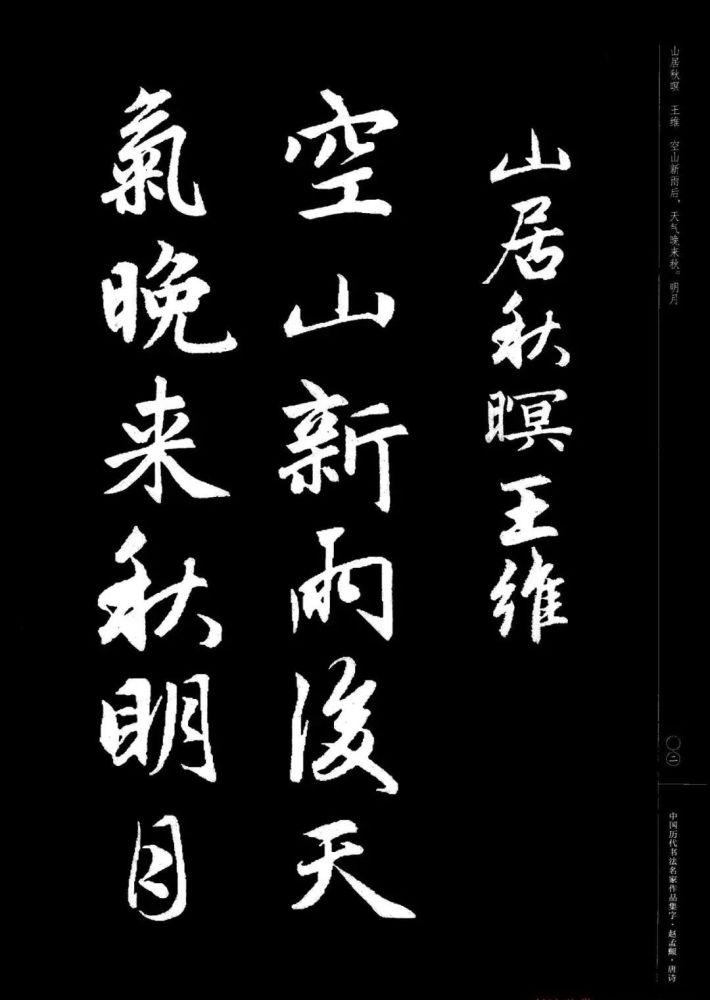 山居秋暝王维
空山新雨後天
氣晚来秋明月
山居秋暝 王维 空山新雨后，天气晚来秋。明月
〇二
中国历代书法名家作品集字·赵孟頫·唐诗